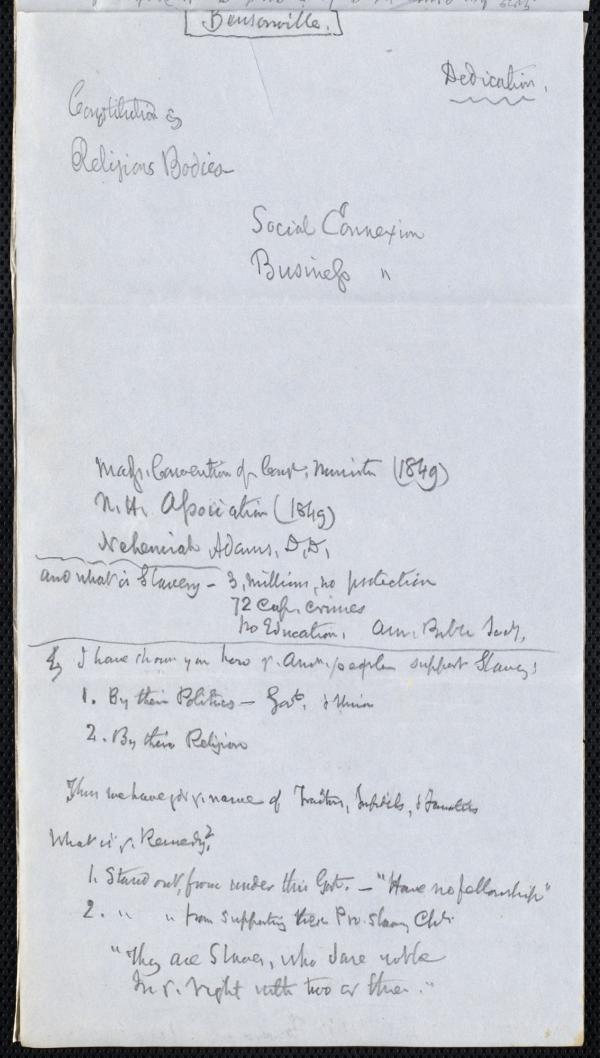 Bensonville.
Dedication.
Constitution &
Religious Bodies
Social Connexion
Business "
Mass. Convention of Cong. Ministers (1849)
N. H. Association (1849)
Nehemiah Adams, D.D.
and what is Slavery – 3, millions, no protection
72 cap. crimes
No Education. Am. Bible Socy.
I have shown you how ye. Amn. people support Slavery:
1. By their Politics – Govt. & Union
2. By their Religion
Thus we have got ye. name of Traitors, Infidels, & Fanatics
What is ye. Remedy?
1. Stand out from under this Govt. – "Have no fellowship"
2. " " from supporting these Pro-Slavery Chhs.
"They are Slaves, who dare not be
In ye. right with two or three."